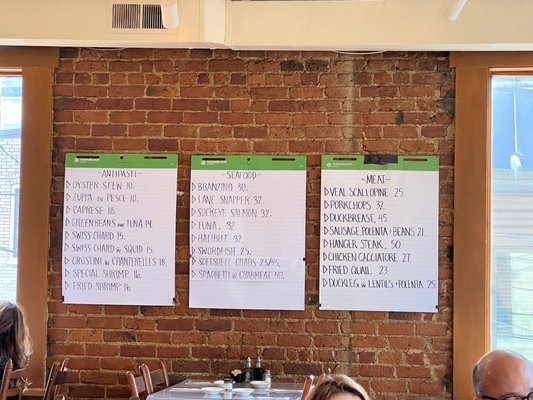 -ANTIPASTI-
OYSTER STEW 10.
ZUPPA DI PESCE 10.
CAPRESE 18.
GREEN BEANS AND TUNA 14.
SWISS CHARD 15.
SWISS CHARD W SQUID 15.
CROSTINI W CHANTERELLES 18.
SPECIAL SHRIMP 16.
FRIED SHRIMP 16.
-SEAFOOD-
BRANZINO 30.
LANE SNAPPER 32.
SOCKEYE SALMON 32.
TUNA 32.
HALIBUT 32.
SWORDFISH 25.
SOFTSHELL CRABS 23/45.
SPAGHETTI W CRABMEAT
-MEAT-
VEAL SCALLOPINE 25
PORKCHOPS 32
DUCKBREAST, 45
SAUSAGE, POLENTA & BEANS 21
HANGER STEAK, 50
CHICKEN CACCIATORE 27
FRIED QUAIL 23
DUCKLEG W LENTILS & POLENTA 25